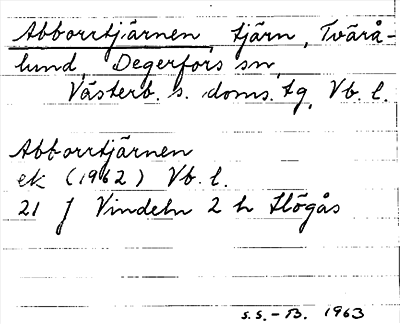 Abborrtjärnen, tjärn, Tvärå-
lund, Degerfors sn,
Västerb. s. doms. tg, Vb. l.
Abborrtjärnen
ek (1962) Vb. l.
21 J Vindeln 2 h Högås
S.S.-B. 1963